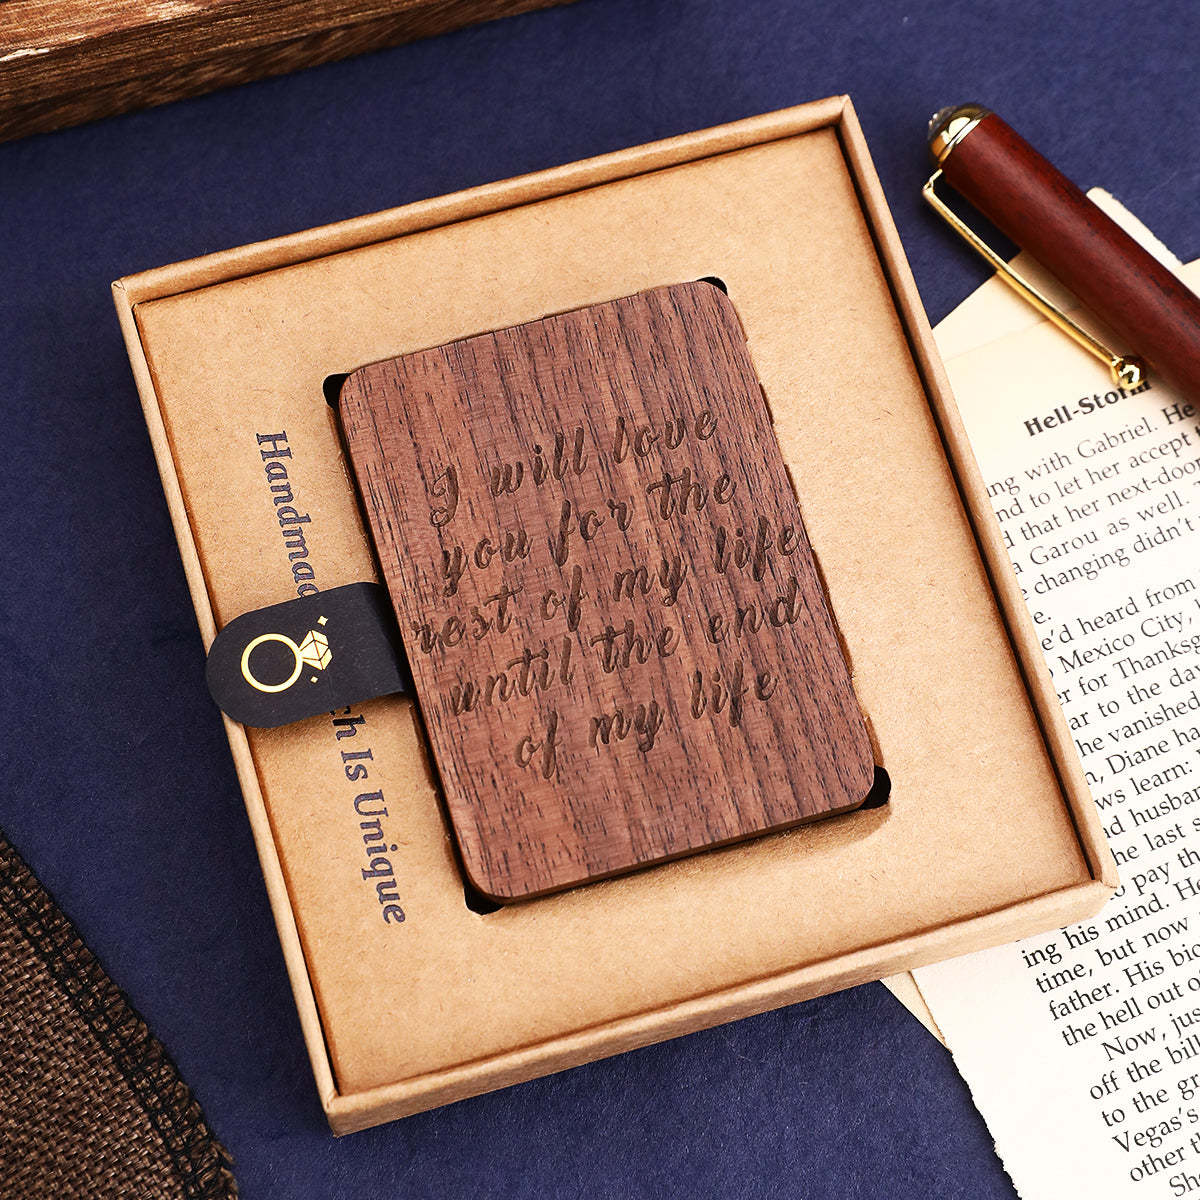 I will love
you for the
rest of my life
until the end
of my life
Handma
ch Is Unique
Hell-Storm
ng with Gabriel. He
nd to let her accept
d that her next-doo
a Garou as well.
e changing didn't
e.
e'd heard from
Mexico City,
r for Thanksg
ar to the da
he vanished
n, Diane ha
ws learn:
d husban
he last s
o pay th
ing his mind. He
time, but now
father. His bio
the hell out o
Now, jus
off the bill
to the gr
Vegas's
other t
Sh